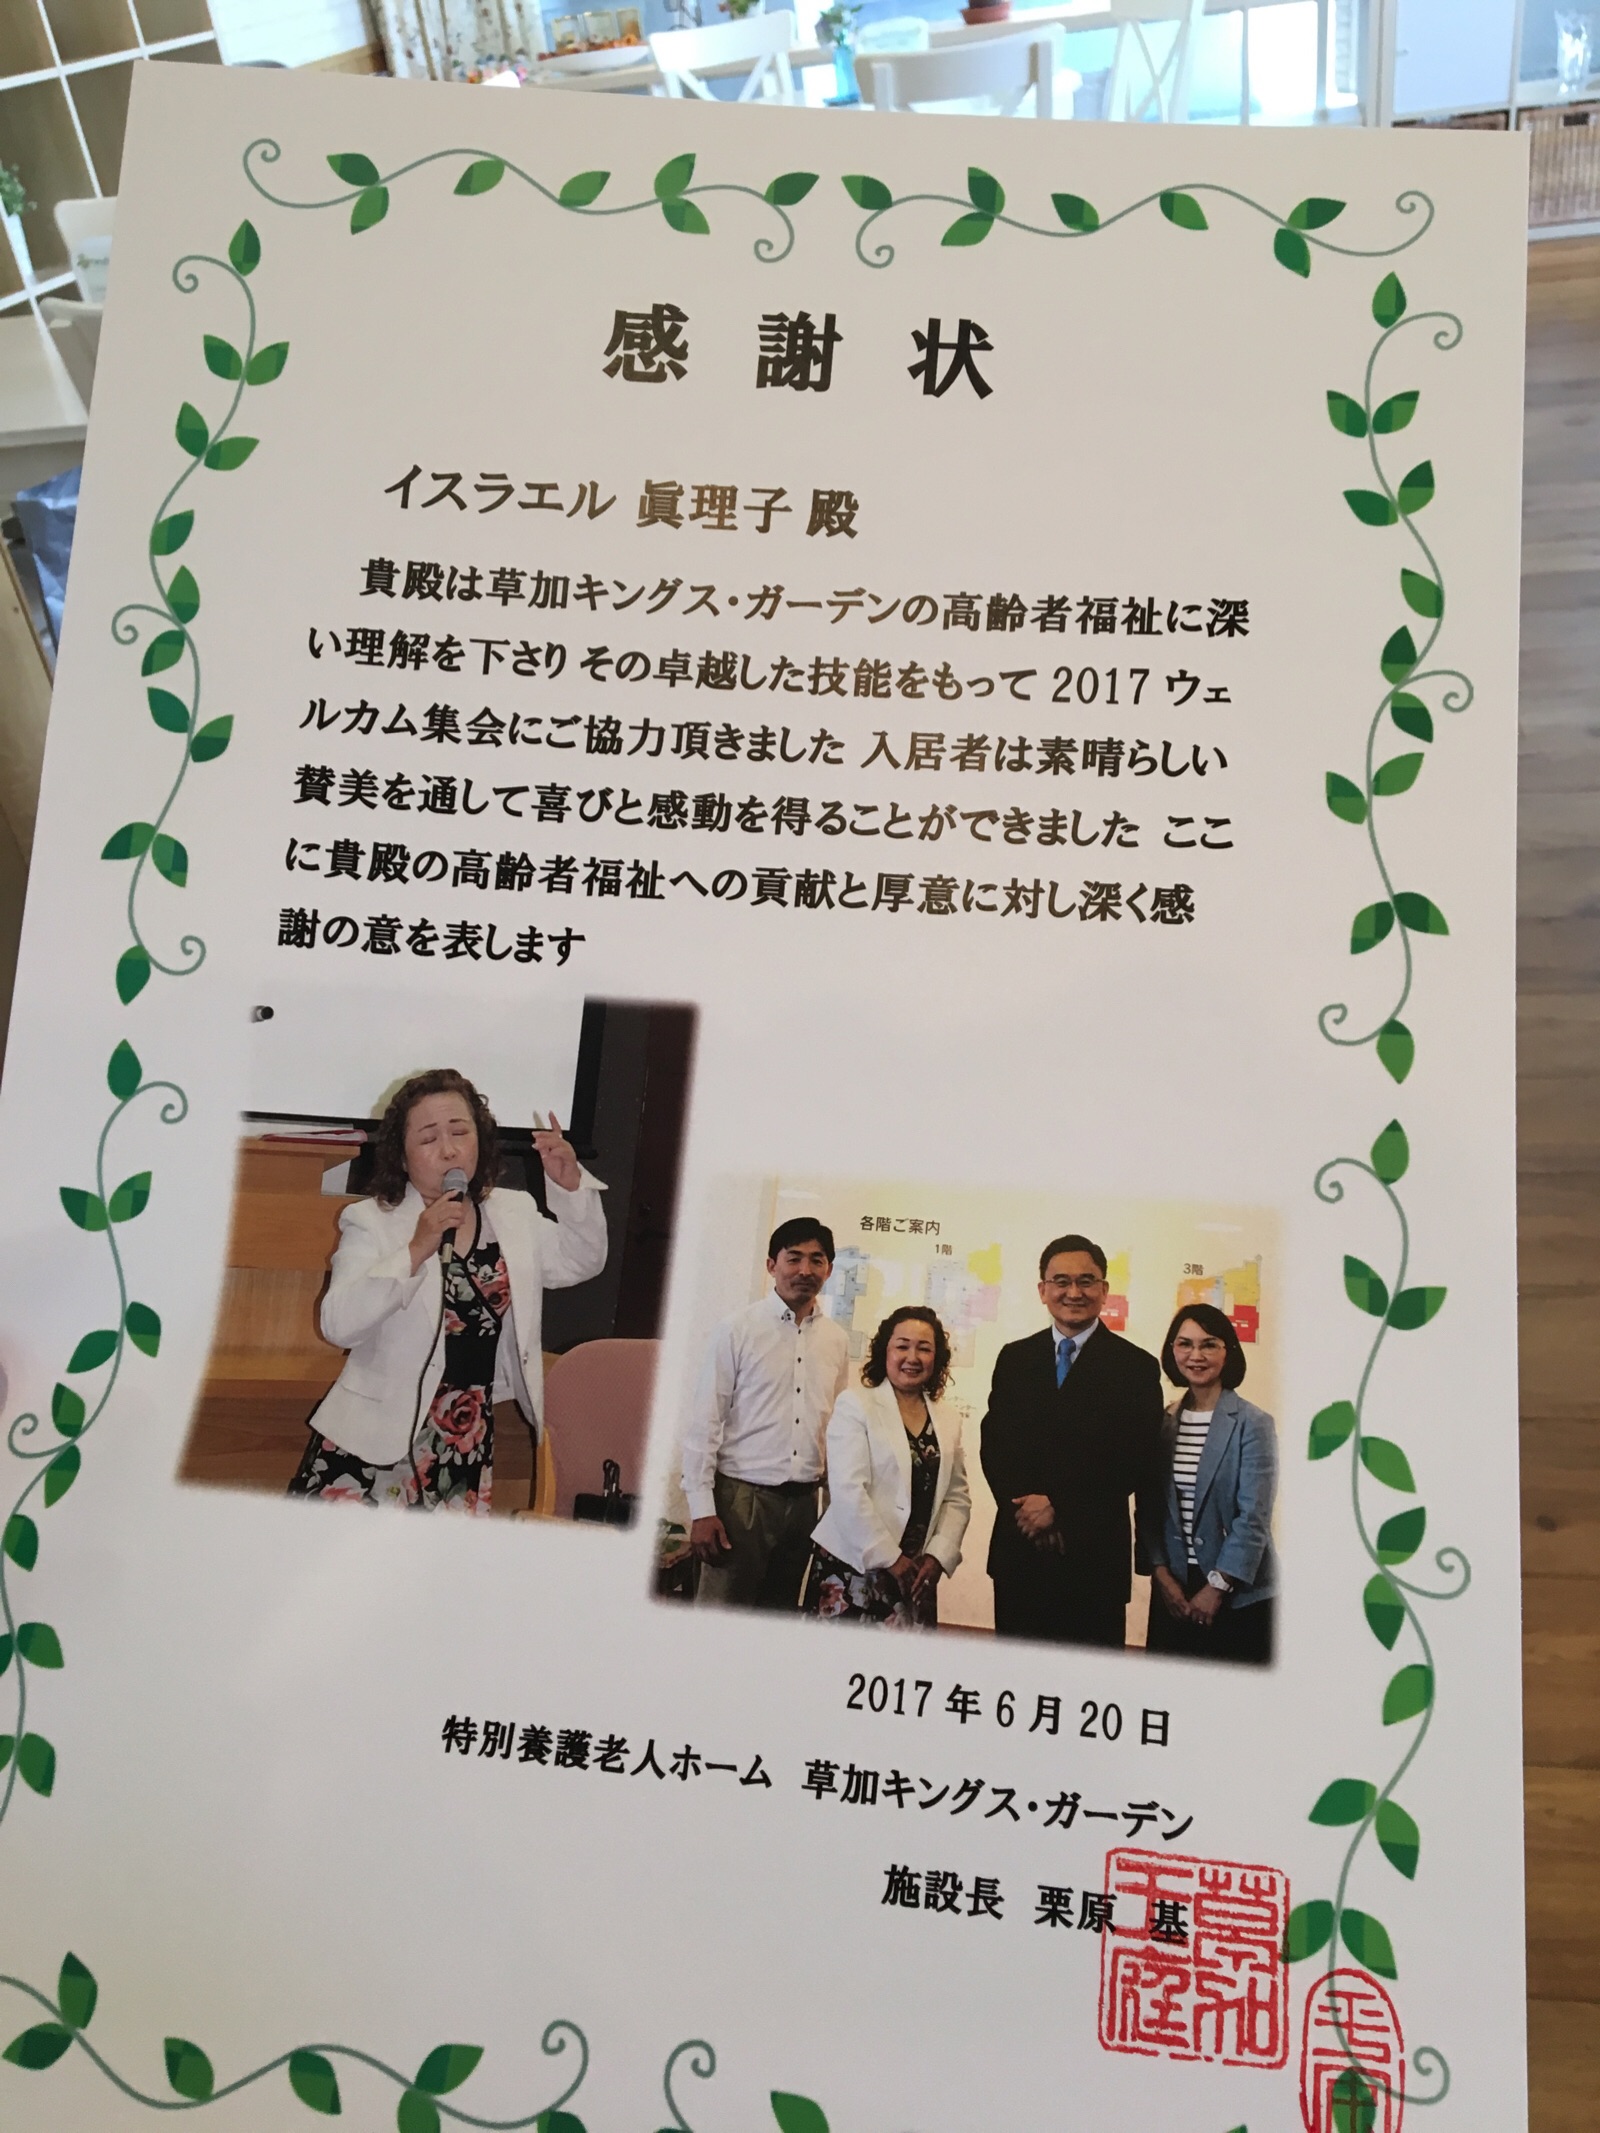 感謝状
イスラエル 眞理子 殿
貴殿は草加キングス・ガーデンの高齢者福祉に深
い理解を下さり その卓越した技能をもって 2017 ウェ
ルカム集会にご協力頂きました 入居者は素晴らしい
賛美を通して喜びと感動を得ることができました ここ
に貴殿の高齢者福祉への貢献と厚意に対し深く感
謝の意を表します
各階ご案内
1階
3階
2017 年 6 月 20 日
特別養護老人ホーム 草加キングス・ガーデン
施設長 栗原 基